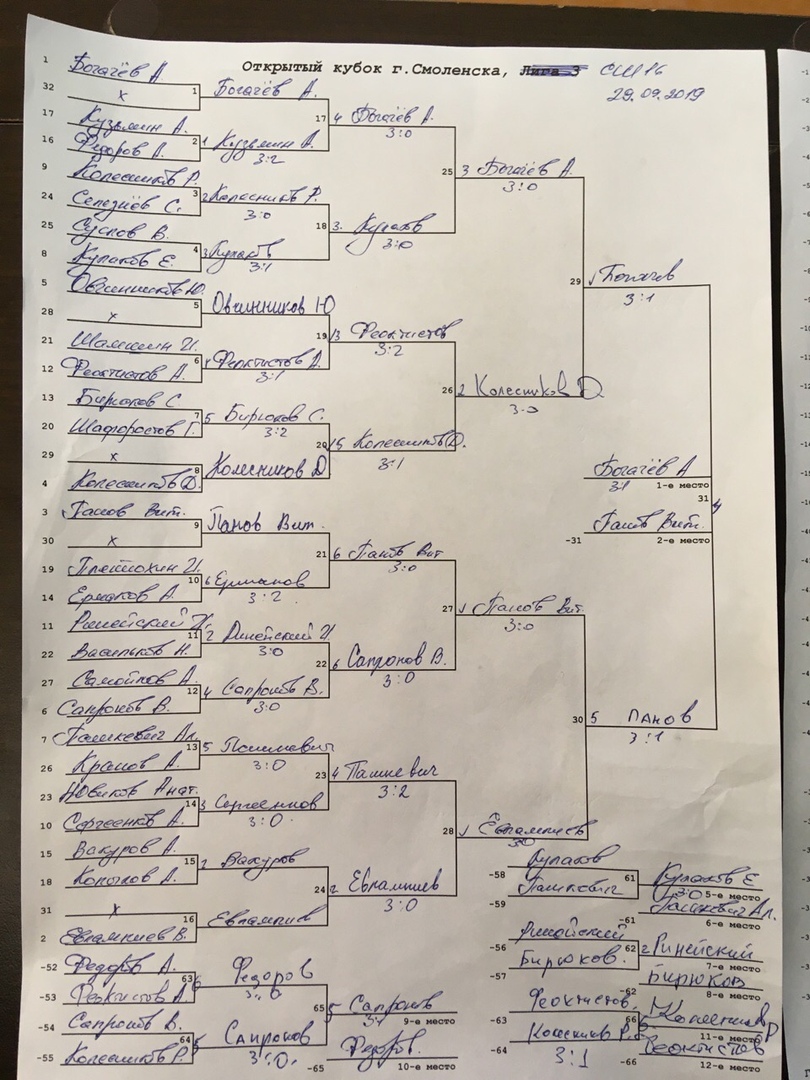 Открытый кубок г.Смоленска, Лига 3 СШ 16
29.09.2019
1 Богачёв А
32 х
17 Кузьмин А.
16 Федоров А.
9 Колесников Р.
24 Селезнёв С.
25 Суслов В.
8 Кулаков Е.
5 Овчинников Ю.
28 х
21 Шамшин И.
12 Феоктистов А.
13 Бирюков С
20 Шафоростов Г.
29 х
4 Колесников Д.
3 Панов Вит.
30 х
19 Плетюхин И.
14 Ермаков А
11 Ринейский И.
22 Васильков Н.
27 Самойлов А.
6 Сапронов В.
7 Пашкевич Ал.
26 Крамов А.
23 Новиков Анат.
10 Сергеенков А.
15 Вакуров А
18 Копычков А.
31 х
2 Евлампиев В.
1 Богачёв А.
2 1 Кузьмин А.
3:2
3 2 Колесников Р.
3:0
4 3 Кулаков
3:1
5 Овчинников Ю
6 1 Феоктистов А.
3:1
7 5 Бирюков С.
3:2
8 Колесников Д
9 Панов Вит.
10 6 Ермаков
3:2
11 2 Ринейский И
3:0
12 4 Сапронов В.
3:0
13 5 Пашкевич
3:0
14 3 Сергеенков
3:0
15 2 Вакуров
16 Евлампиев
17 4 Богачёв А.
3:0
18 3. Кулаков
3:0
19 13 Феоктистов
3:2
20 15 Колесников Д.
3:1
21 6 Панов Вит
3:0
22 6 Сапронов В.
3:0
23 4 Пашкевич
3:2
24 2 Евлампиев
3:0
25 3 Богачёв А.
3:0
26 2 Колесников D
3-0
27 1 Панов Вит.
3:0
28 1 Евлампиев
30
29 1 Богачёв
3:1
30 5 Панов
3:1
Богачёв А
3:1 1-е место
31 4
-31 Панов Вит.
2-е место
-58 Кулаков
-59 Пашкевич
61 Кулаков Е
3:0 5-е место
-61 Пашкевич Ал.
6-е место
-56 Ринейский
-57 Бирюков.
62 2 Ринейский
7-е место
-62 Бирюков
8-е место
-63 Феоктистов.
-64 Колесников Р.
66 Колесников Р
3:1 11-е место
-66 Феоктистов
12-е место
-52 Федоров А.
-53 Феоктистов А
63 6 Федоров
3:0
-54 Сапронов В.
-55 Колесников Р.
64 5 Сапронов
3:0.
65 5 Сапронов
3:1 9-е место
-65 Федоров.
10-е место